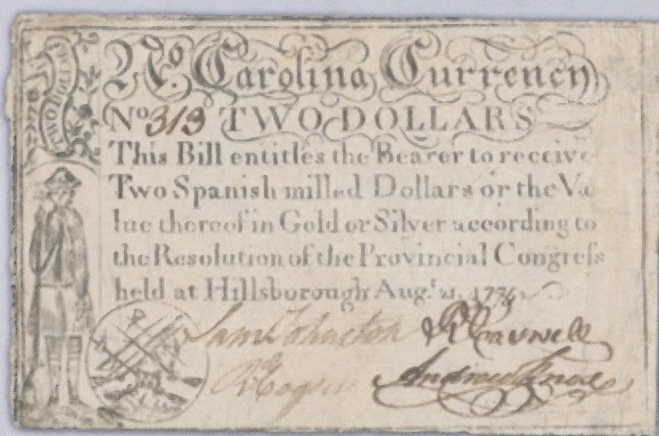 TWO DOLLARS
No. Carolina Currency
No 313 TWO DOLLARS
This Bill entitles the Bearer to receive
Two Spanish milled Dollars or the Va
lue thereof in Gold or Silver according to
the Resolution of the Provincial Congress
held at Hillsborough Augt. 21, 1775
Sam Johnston RCaswell
Andrew Knox